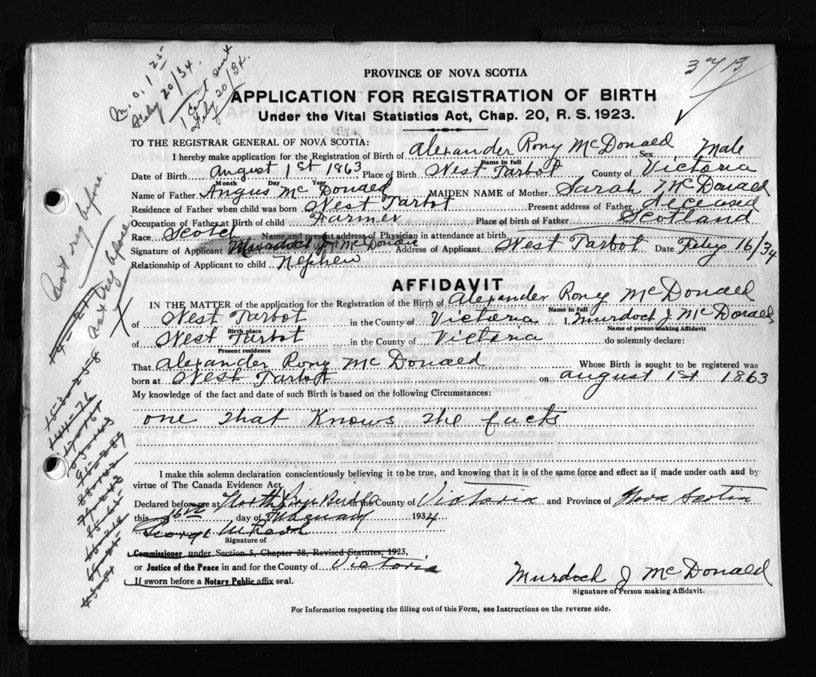 M.O. 1 25
Feby 20/34
Feby 20/34.
373
PROVINCE OF NOVA SCOTIA
APPLICATION FOR REGISTRATION OF BIRTH
Under the Vital Statistics Act, Chap. 20, R. S. 1923.
TO THE REGISTRAR GENERAL OF NOVA SCOTIA:
I hereby make application for the Registration of Birth of Alexander Rory McDonald Sex Male
Name in full
Date of Birth August 1st 1863 Place of Birth West Tarbot County of Victoria
Month Day Year
Name of Father Angus McDonald MAIDEN NAME of Mother Sarah McDonald
Residence of Father when child was born West Tarbot Present address of Father deceased
Occupation of Father at Birth of child Farmer Place of birth of Father Scotland
Race Scotch Name and present address of Physician in attendance at birth
Signature of Applicant Murdoch J McDonald Address of Applicant West Tarbot Date Feby 16/34
Relationship of Applicant to child Nephew
AFFIDAVIT
IN THE MATTER of the application for the Registration of the Birth of Alexander Rory McDonald
Name in full
of West Tarbot in the County of Victoria I, Murdoch J. McDonald
Birth place Name of person making Affidavit
of West Tarbot in the County of Victoria do solemnly declare:
Present residence
That Alexander Rory McDonald Whose Birth is sought to be registered was
born at West Tarbot on August 1st 1863
My knowledge of the fact and date of such Birth is based on the following Circumstances:
one that Knows the facts
I make this solemn declaration conscientiously believing it to be true, and knowing that it is of the same force and effect as if made under oath and by
virtue of The Canada Evidence Act.
Declared before me at North in the County of Victoria and Province of Nova Scotia
this 16th day of 1934
Signature of
Commissioner under Section 5, Chapter 38, Revised Statutes, 1923,
or Justice of the Peace in and for the County of Victoria
If sworn before a Notary Public affix seal.
Murdoch J McDonald
Signature of Person making Affidavit.
For Information respecting the filling out of this Form, see Instructions on the reverse side.